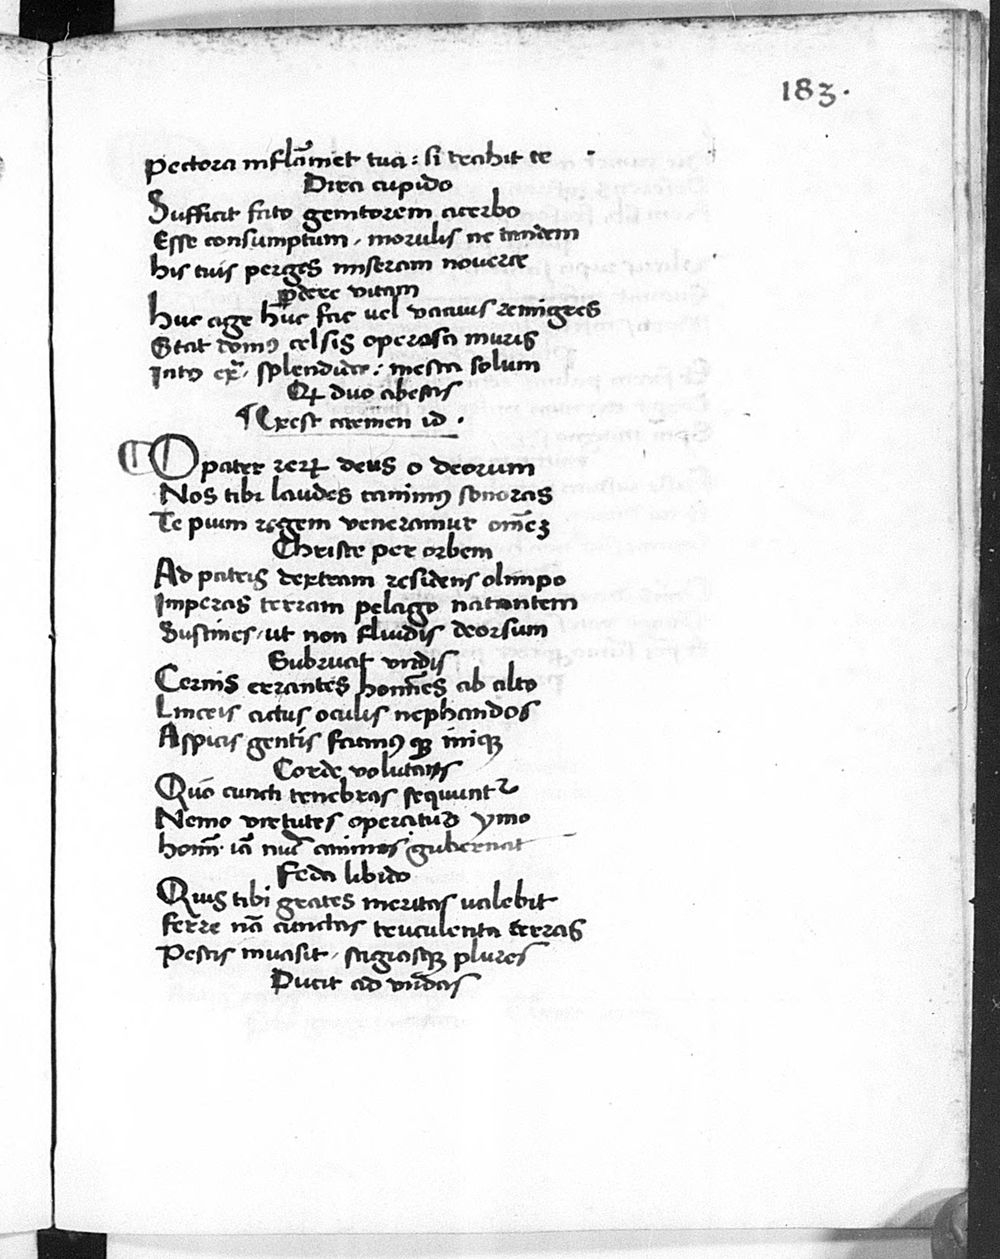 183.
Pectora inflāmet tua : si trahit te
Dira cupido
Sufficit fato genitorem acerbo
Esse consumptum, morulis ne tandem
his tuis perges miseram nouerce
ꝑdere vitam
huc age hūc fac uel vacuus remiges
Stat domꝰ celsis operosa muris
Intꝰ exᷓ, splendide : mesta solum
Qꝝ duo abestis
¶ Exest carmen id .
O pater rerꝝ deus o deorum
Nos tibi laudes canimꝰ sonoras
Te pium regem veneramur om̄eʒ
Christe per orbem
Ad patris dextram residens olimpo
Imperas terram pelago natantem
Sustines, ut non fluidis deorsum
Subruat vndis
Cernis errantes homīes ab alto
Linceis actus oculis nephandos
Aspicis gentis facimꝰ inique
Corde volutans
Quō cuncti tenebras sequunt᷑
Nemo virtutes operatur ymo
homī iā nūc animos gubernat
Feda libido
Quis tibi grates meritas ualebit
ferre nā cunctas truculenta terras
Pestis inuasit, stigiasqꝫ plures
Ducit ad vndas